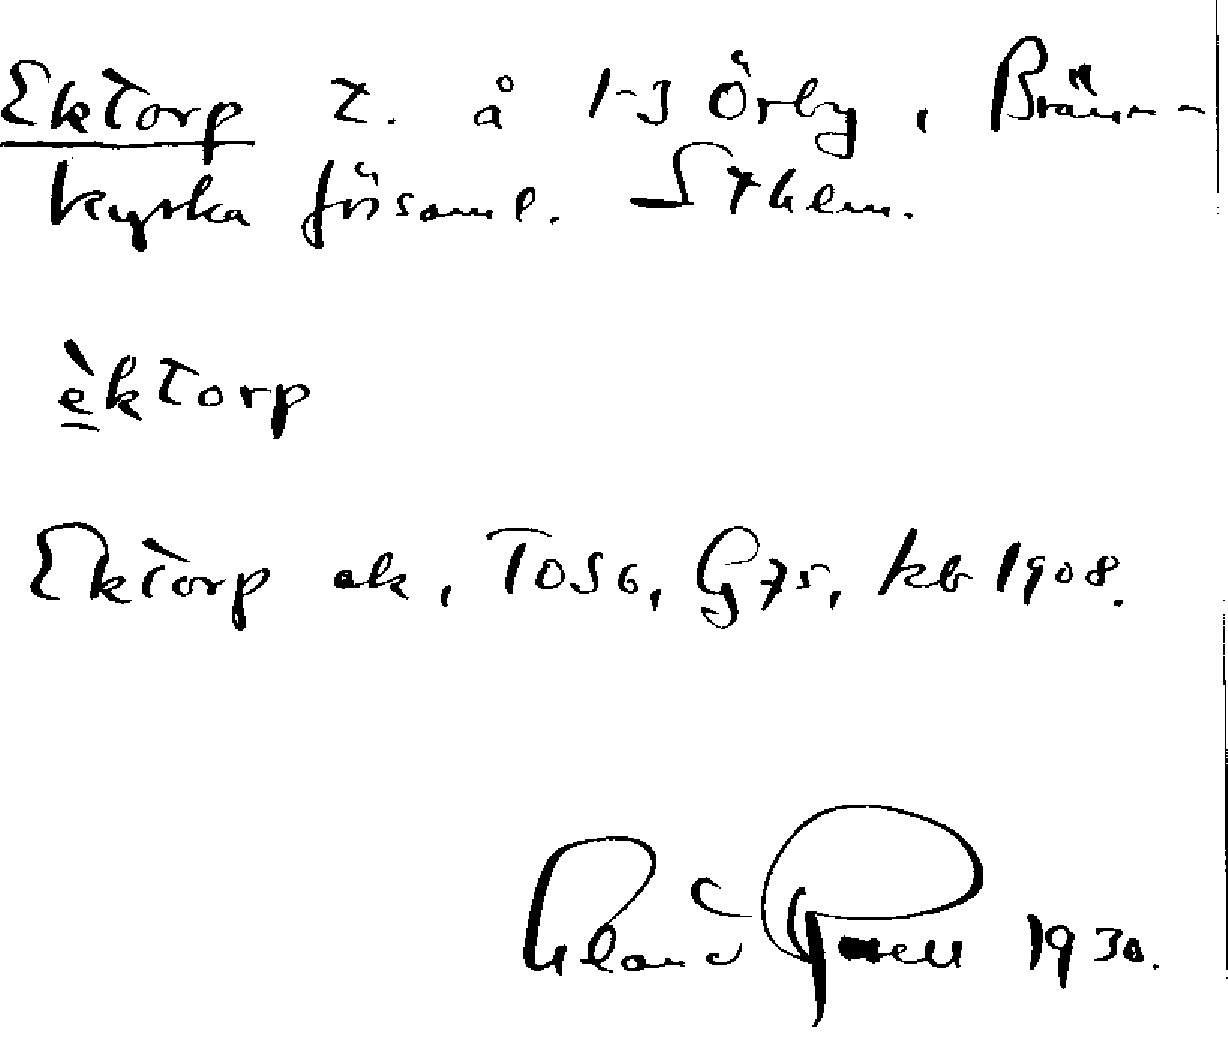 Ektorp t. å 1-3 Örby, Bränn-
kyrka församl. Sthlm.
èktorp
Ektorp ek, T056, G75, kb 1908.
1930.